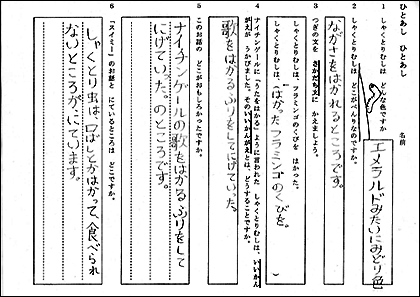 ひとあし　ひとあし
名前
1　しゃくとりむしは　どんな色ですか
エメラルドみたいにみどり色
2　しゃくとりむしは、どこがべんりなのですか。
ながさをはかれるところです。
3　つぎの文を　さかだち文に　かえましょう。
しゃくとりむしは、フラミンゴのくびを　はかった。
しゃくとりむしは、「はかった　フラミンゴのくびを。」
4　ナイチンゲールに「うたをはかる」ように言われた　しゃくとりむしは、いいかんがえが　うかびました。そのいいかんがえとは、どうすることですか。
歌をはかるふりをしてにげていった。
5　このお話の　どこがおもしろかったですか。
ナイチンゲールの歌をはかるふりをして
にげていった。のところです。
6　「スイミー」のお話と　にているところは　どこですか。
しゃくとり虫は、口ばしとかはかって、食べられ
ないところが、にています。